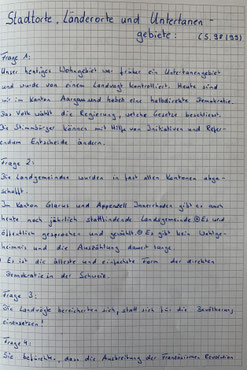 Stadtorte, Länderorte und Untertanen-
gebiete: (S.98/99)
Frage 1:
Unser heutiges Wohngebiet war früher ein Untertanengebiet
und wurde von einem Landvogt kontrolliert. Heute sind
wir im Kanton Aargau und habet eine halbdirekte Demokratie.
Das Volk wählt die Regierung, welche Gesetze beschliesst.
Die Stimmbürger können mit Hilfe von Initiativen und Refer-
endum Entscheide ändern.
Frage 2:
Die Landgemeinden wurden in fast allen Kantonen abge-
schafft.
Im Kanton Glarus und Appenzell Innerrhoden gibt es auch
heute noch jährlich stattfindende Landsgemeinde. Es wird
öffentlich gesprochen und gewählt. Es gibt kein Wahlge-
heimnis und die Auszählung dauert lange.
Es ist die älteste und einfachste Form der direkten
Demokratie in der Schweiz.
Frage 3:
Die Landvögte bereicherten sich, statt sich für die Bevölkerung
einzusetzen!
Frage 4:
Sie befürchte, dass die Ausbreitung der Französischen Revolution